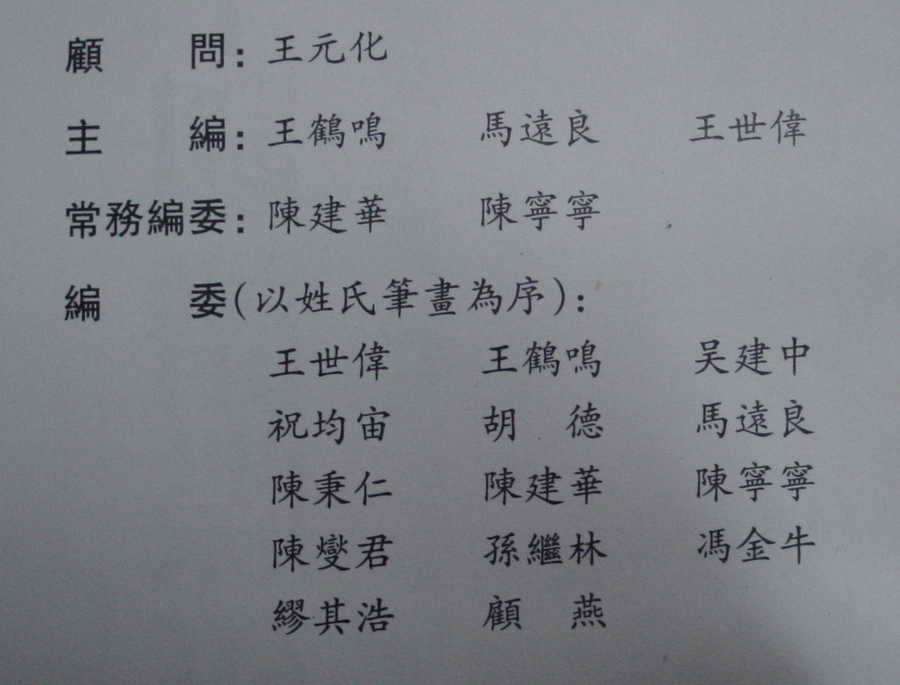 顧　　問：王元化
主　　編：王鶴鳴　馬遠良　王世偉
常務編委：陳建華　陳寧寧
編　　委（以姓氏筆畫為序）：
王世偉　王鶴鳴　吴建中
祝均宙　胡　德　馬遠良
陳秉仁　陳建華　陳寧寧
陳燮君　孫繼林　馮金牛
繆其浩　顧　燕